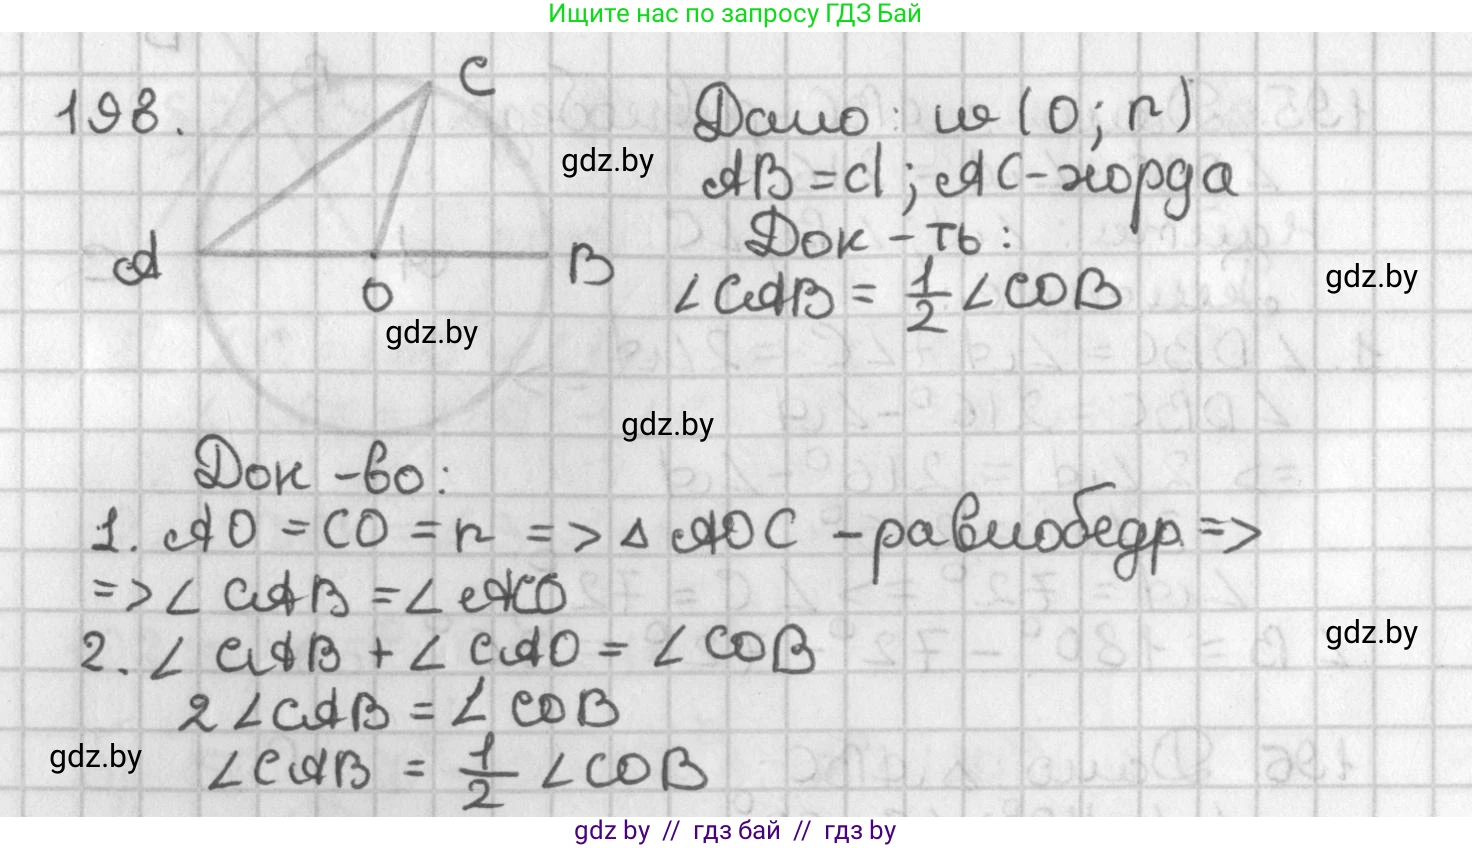 Ищите нас по запросу ГДЗ Бай
198.
C
A
O
B
Дано: w (O; r)
AB = d; AC - хорда
Док - ть:
∠CAB = 1/2 ∠COB
gdz.by
gdz.by
gdz.by
gdz.by
Док - во:
1. AO = CO = r => △ AOC - равнобедр. =>
=> ∠ CAB = ∠ ACO
gdz.by
2. ∠ CAB + ∠ CAO = ∠ COB
2 ∠CAB = ∠ COB
gdz.by
∠CAB = 1/2 ∠COB
gdz.by // гдз бай // гдз by